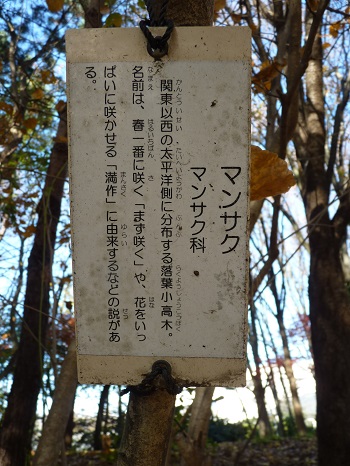 マンサク
マンサク科
関東以西の太平洋側に分布する落葉小高木。
名前は、春一番に咲く「まず咲く」や、花をいっ
ぱいに咲かせる「満作」に由来するなどの説があ
る。